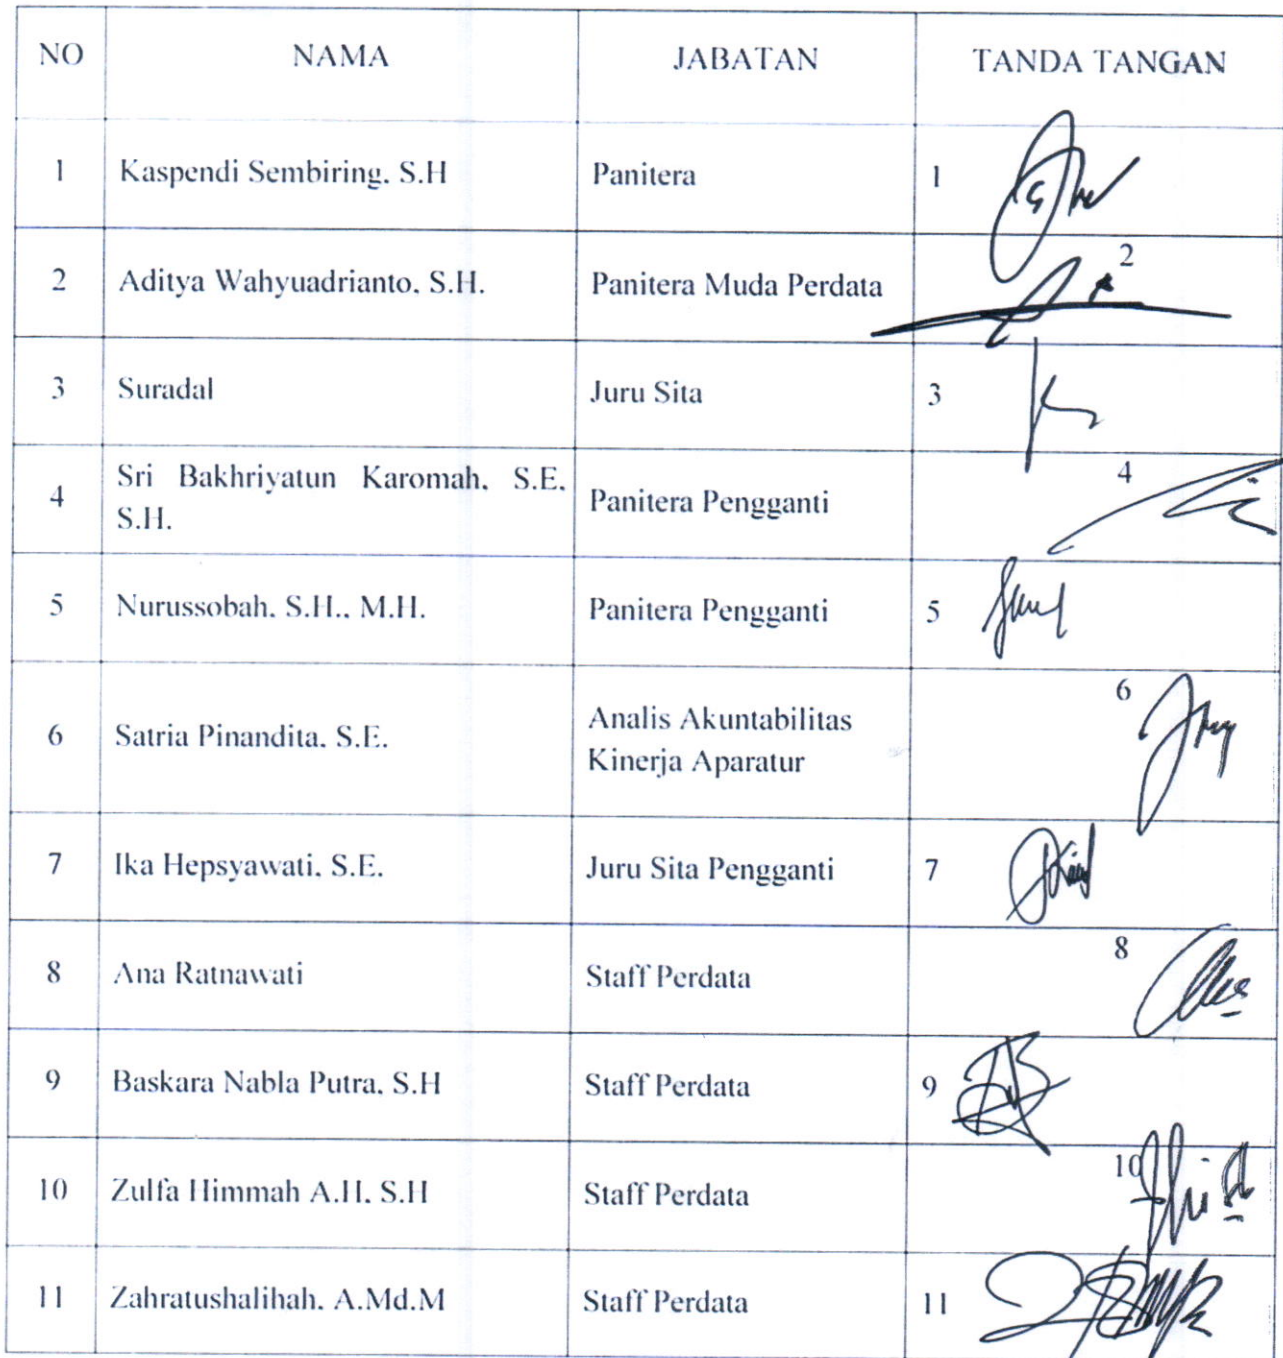 NO NAMA JABATAN TANDA TANGAN
1 Kaspendi Sembiring, S.H Panitera 1
2 Aditya Wahyuadrianto, S.H. Panitera Muda Perdata 2
3 Suradal Juru Sita 3
4 Sri Bakhriyatun Karomah, S.E, S.H. Panitera Pengganti 4
5 Nurussobah, S.H., M.H. Panitera Pengganti 5
6 Satria Pinandita, S.E. Analis Akuntabilitas Kinerja Aparatur 6
7 Ika Hepsyawati, S.E. Juru Sita Pengganti 7
8 Ana Ratnawati Staff Perdata 8
9 Baskara Nabla Putra, S.H Staff Perdata 9
10 Zulfa Himmah A.H, S.H Staff Perdata 10
11 Zahratushalihah, A.Md.M Staff Perdata 11